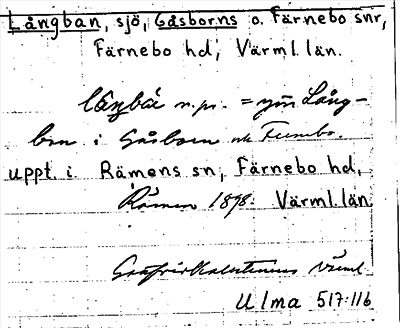 Långban, sjö, Gåsborns o. Färnebo snr,
Färnebo hd, Värml. län.
n. pr. = sjön Lång-
ban i Gåsborn och Fernebo.
uppt. i. Rämens sn, Färnebo hd,
Rämen 1898. Värml. län
Värml.
Ulma 517:116